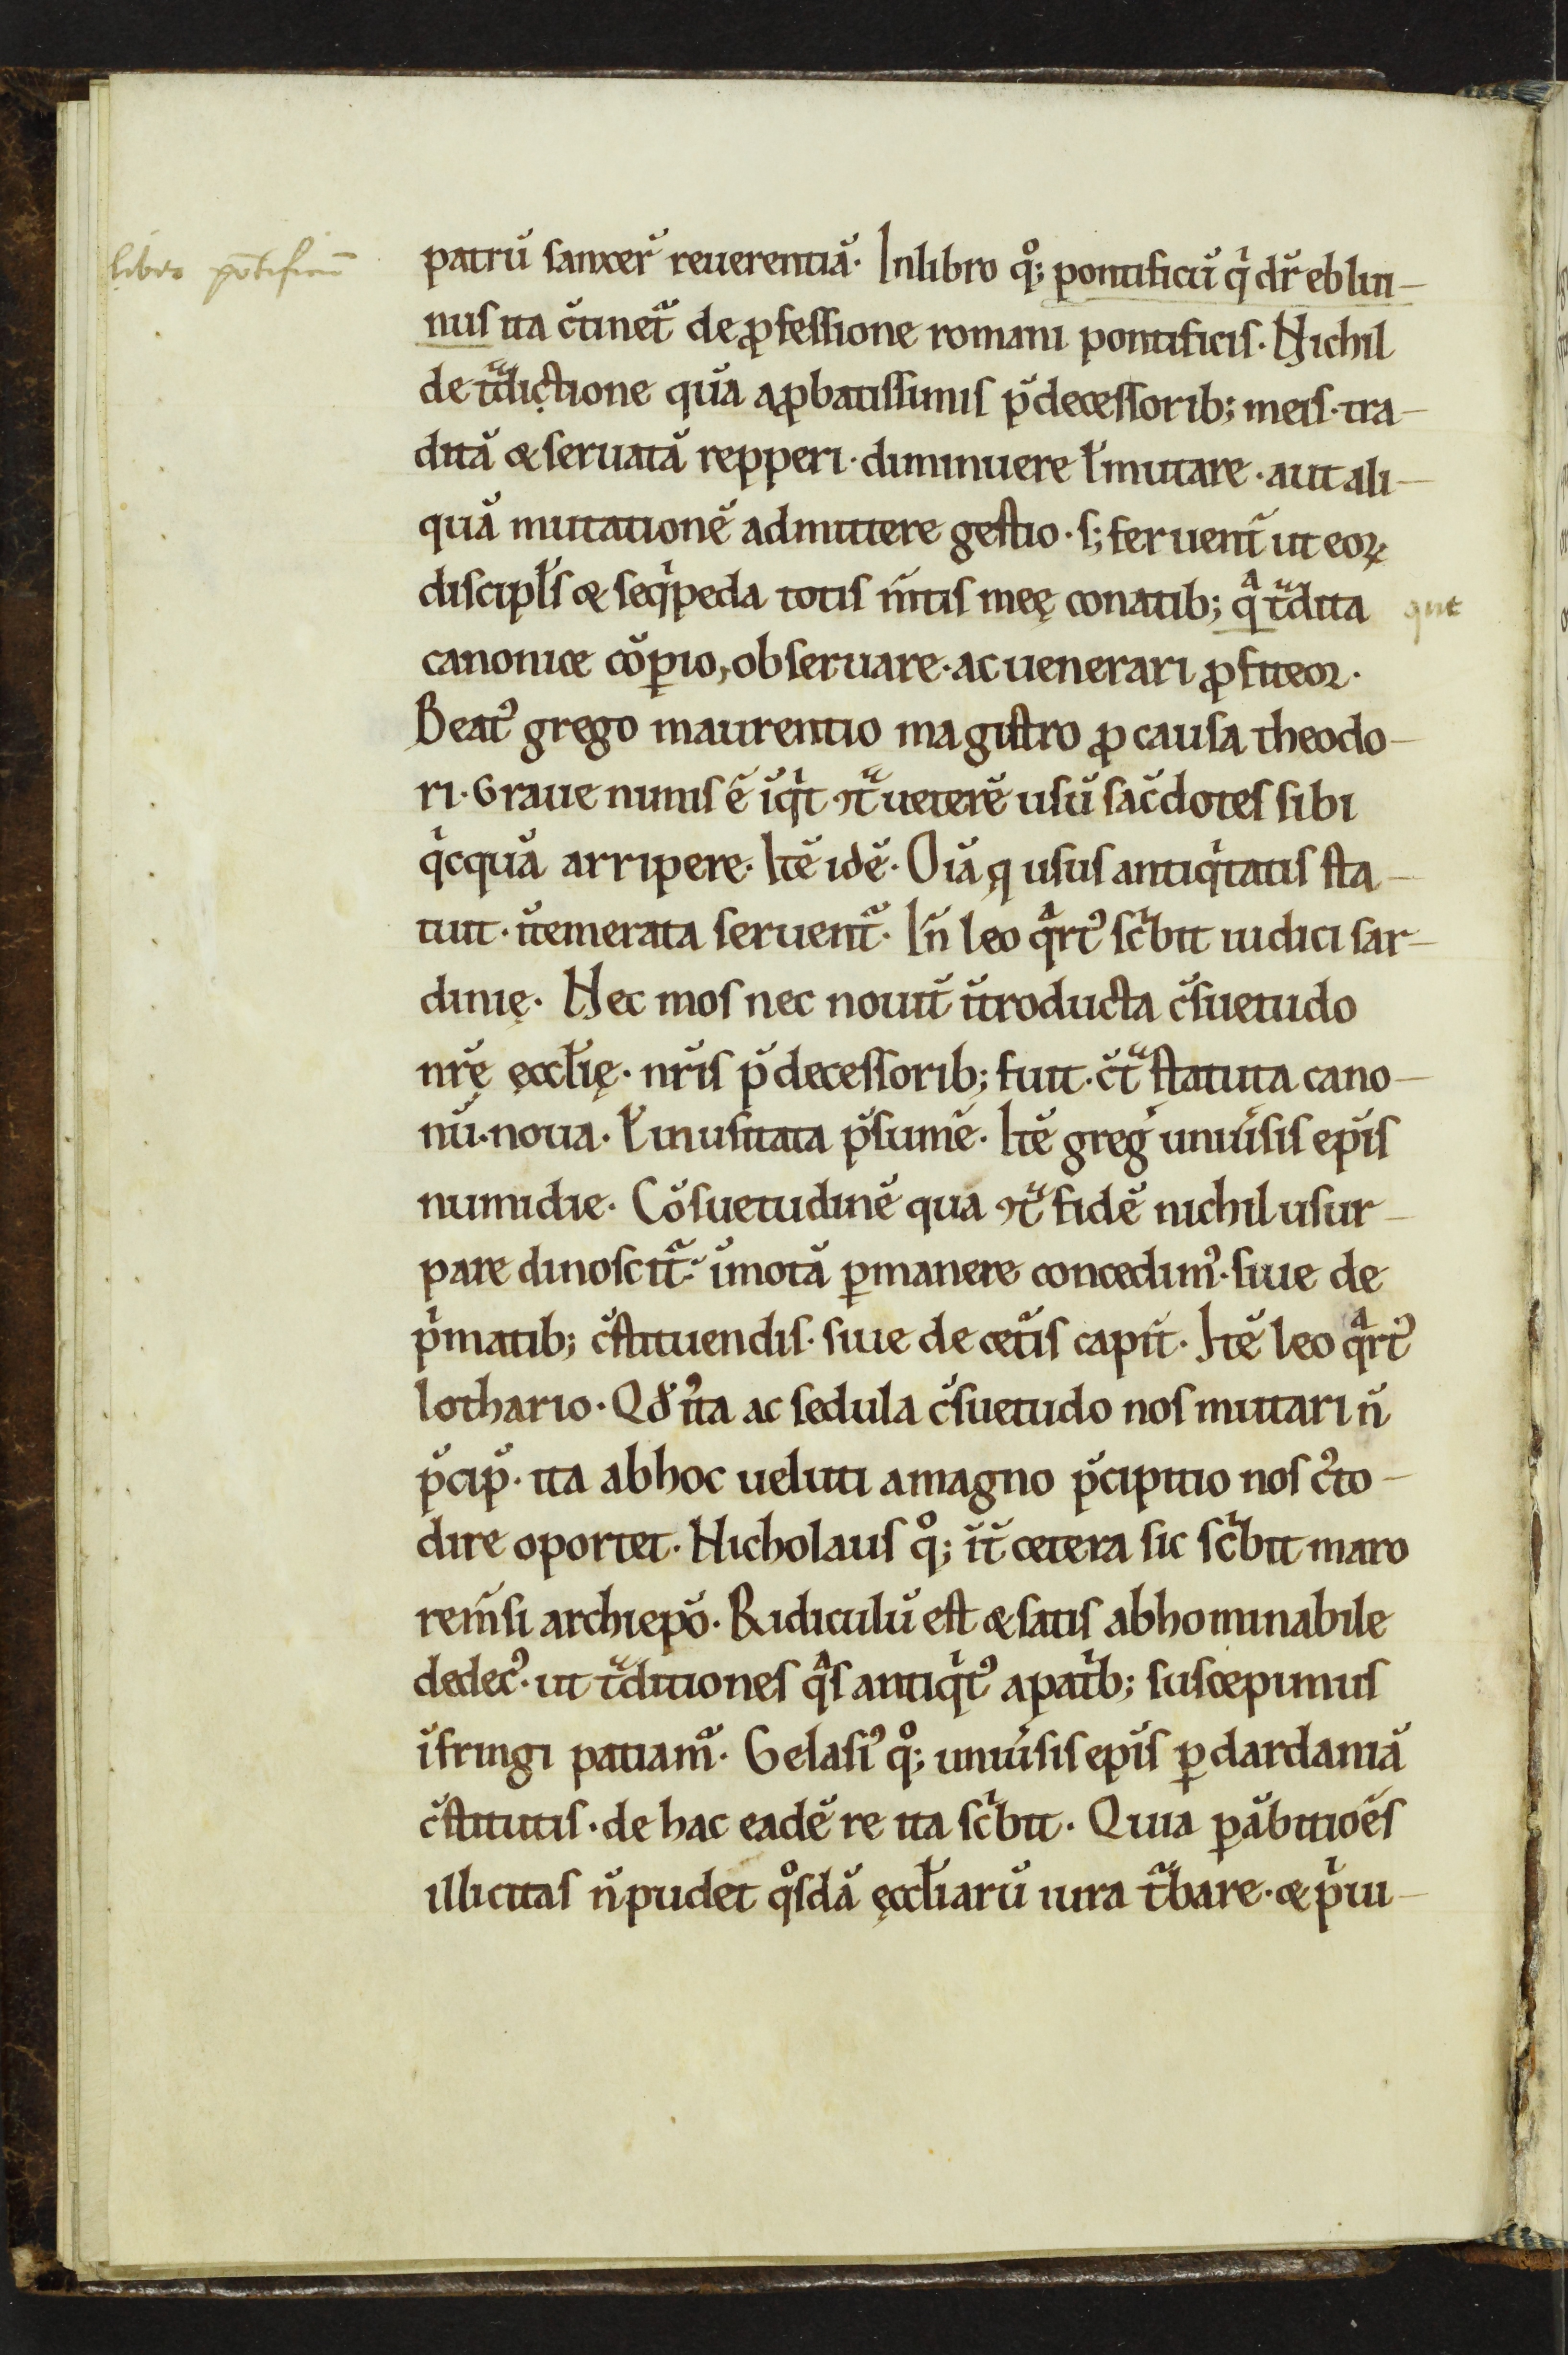 liber pōtificū
patrū sanxer̄ reuerentiā. Inlibro qͦ; pontificū qͥ dr̄ eblin-
nus ita c̄tinet᷑ de ꝓfessione romani pontificis. Nichil
de tᷓdictione quā aꝓbatissimis p̄decessorib; meis. tra-
ditā & seruatā repperi. diminuere ł mutare. aut ali-
quā mutationē admittere gestio. s; feruent̄ ut eoꝝ
discipl̄s & seqͥpeda totis m̄tis meę conatib; qᷓ tᷓdita
que
canonice cōꝑio, obseruare. ac uenerari ꝓfiteor.
Beatꝰ grego maurentio magistro ꝓ causa theodo-
ri. Graue nimis ē īqͥt ꝯtᷓ ueterē usū sac̄dotes sibi
qͥcquā arripere. Itē idē. Oīa q̨ usus antiqͥtatis sta-
tuit. ītemerata seruent᷑. Īn leo qᷓrtꝰ scͥbit iudici sar-
dinię. Nec mos nec nouit̄ ītroducta c̄suetudo
nr̄ę ęccl̄ię. nr̄is p̄decessorib; fuit. c̄tᷓ statuta cano-
nū. noua. ł inusitata p̄sumē. Itē greḡ uniūsis ep̄is
numidie. Cōsuetudinē qua ꝯtᷓ fidē nichil usur-
pare dinoscit᷑. īmotā ꝑmanere concedimꝰ. siue de
pͥmatib; c̄stituendis. siue de cet̄is capit̄. Itē leo qᷓrtꝰ
lothario. Qđ īta ac sedula c̄suetudo nos mutari n̄
p̄cip̄. ita abhoc ueluti amagno p̄cipitio nos c̓to-
dire oportet. Nicholaus qͦ; īt̄ cetera sic scͥbit maro
rem̄si archiep̄o. Ridiculū est & satis abhominabile
dedecꝰ. ut tᷓditiones qᷓs antiqͥtꝰ apatͥb; suscepimus
īfringi patiam᷑. Gelasiꝰ qͦ; uniūsis ep̄is ꝑ dardaniā
c̄stitutis. de hac eadē re ita scͥbit. Quia ꝑ ābitioēs
illicitas n̄ pudet qͦsdā ęccl̄iarū iura t᷑bare. & pͥui-